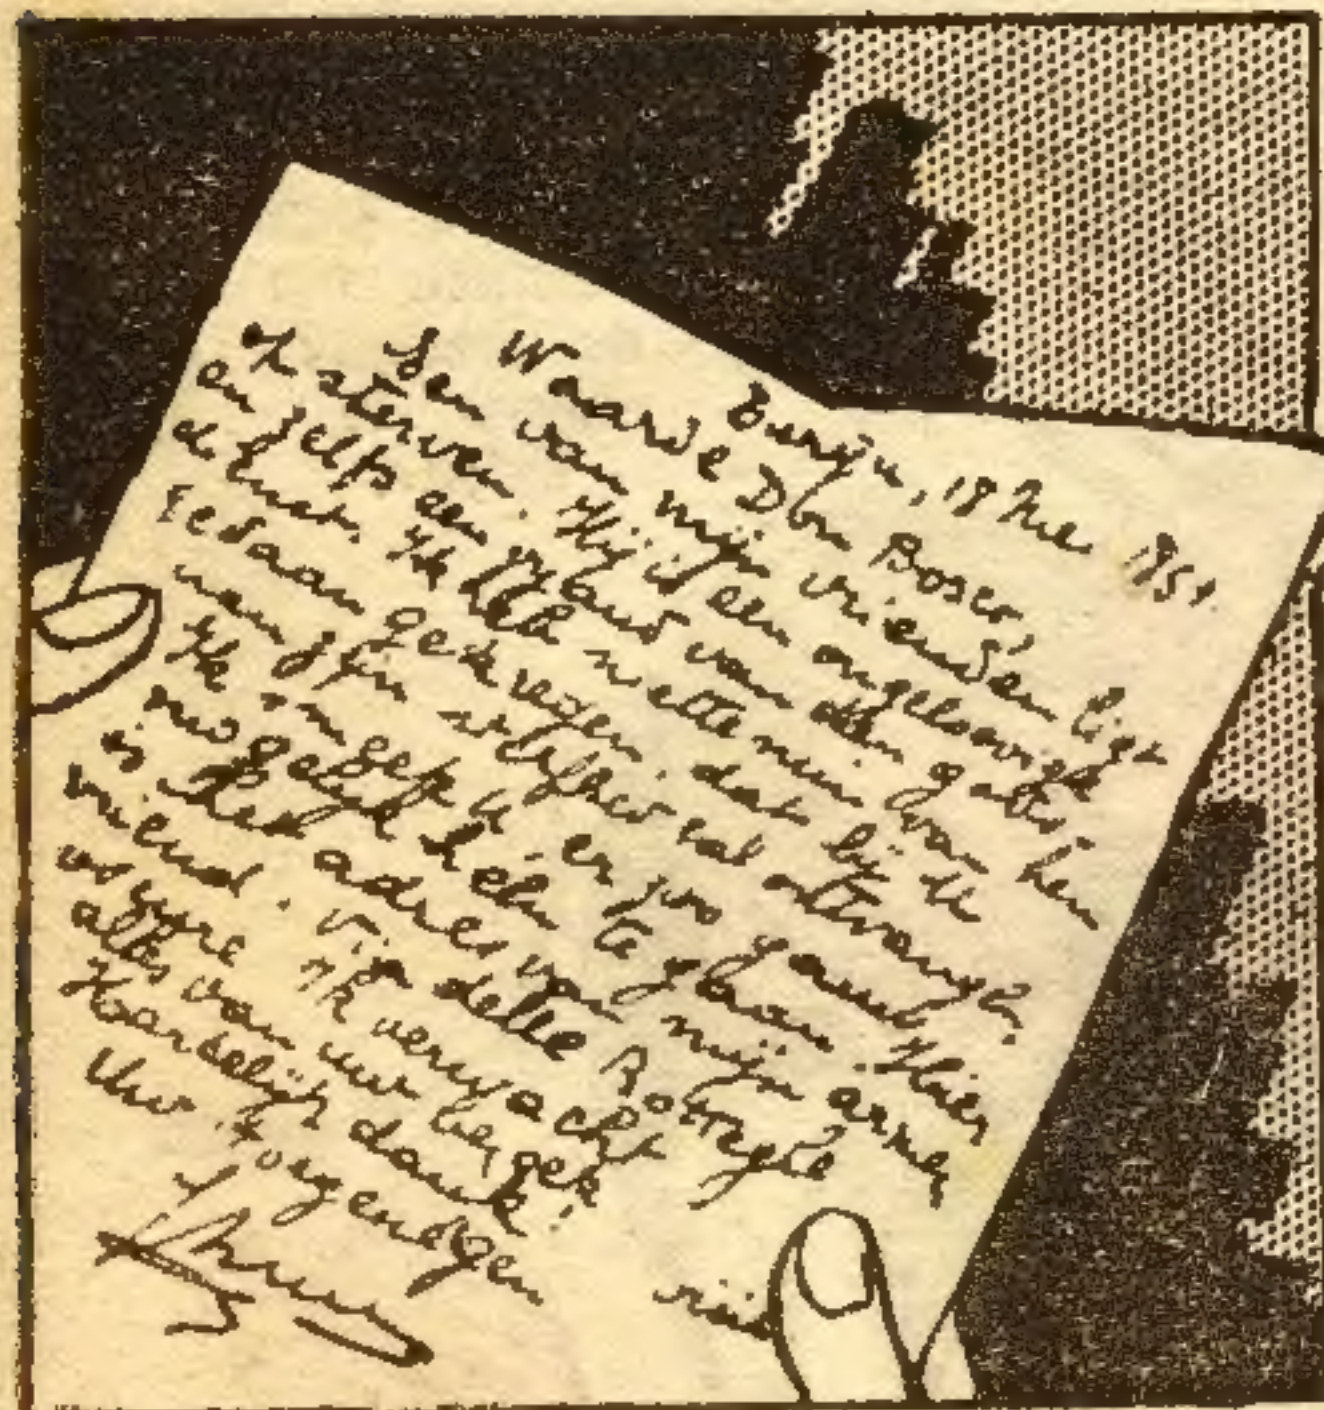 Turijn, 18 Mei 1851.
Waarde Don Bosco,
Een van mijn vrienden ligt
te sterven. Hij is een ongelovige
en zelfs een vyand van den gods-
dienst. Ik heb niettemin van hem
gedaan gekregen, dat hij U
van zijn wil ontvangen.
Ik smeek U, er zoo gauw
mogelijk heen te gaan. Hier
is het adres van mijn armen
vriend. Via delle
Ik verwacht
alles van uw bezoek.
Hartelijk dank!
Uw toegenegen